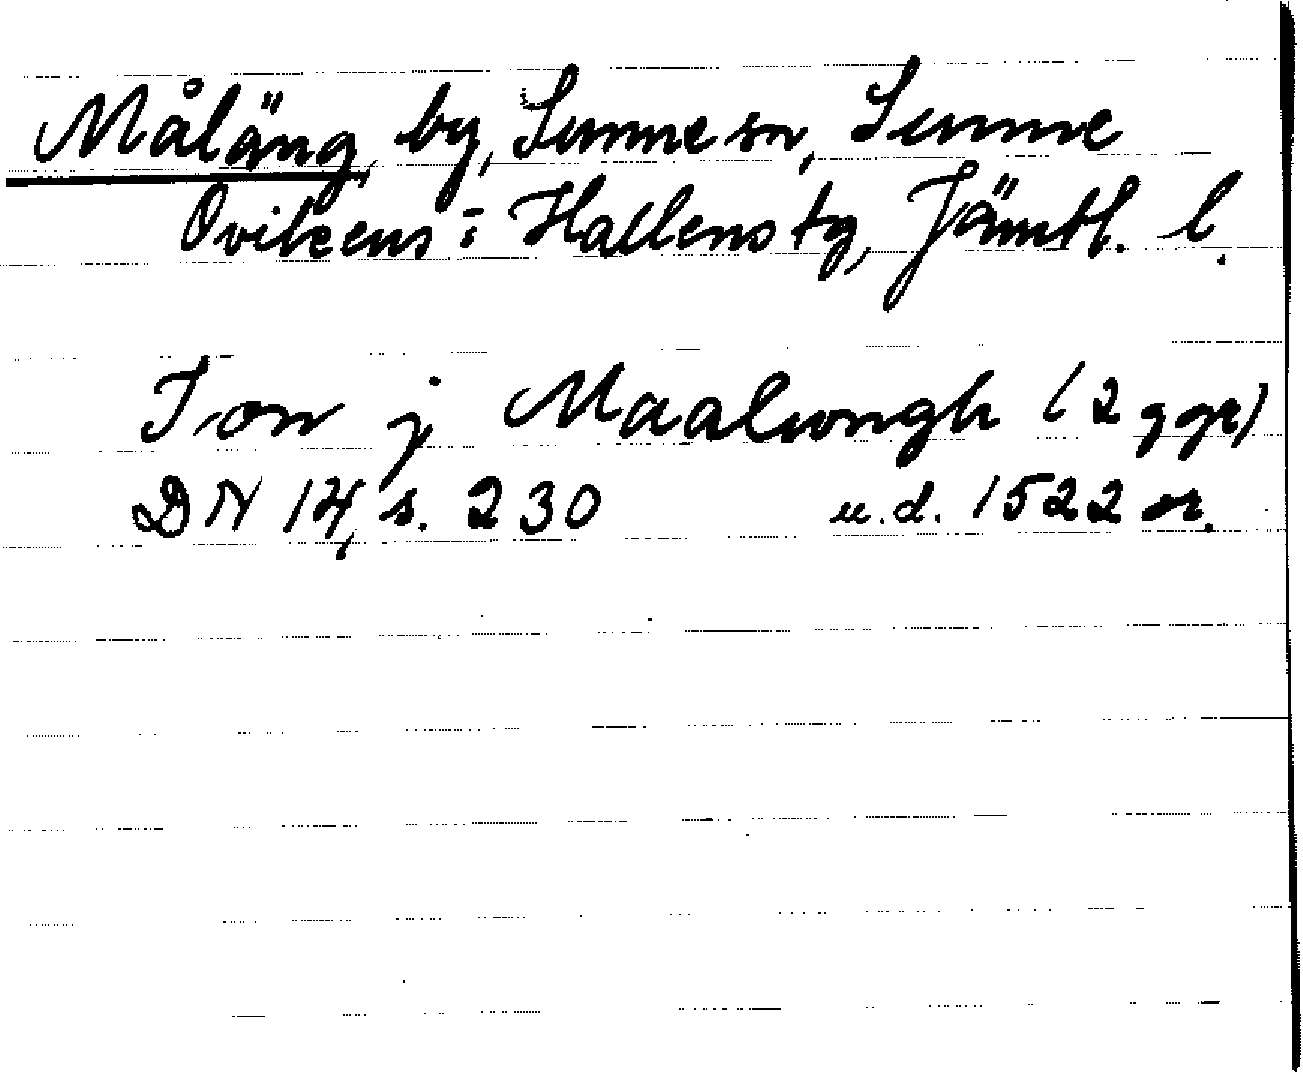 Måläng, by, Sunne sn, Sunne
Ovikens i Hallens tg, Jämtl. l.
Jon j Maalwongh (2 ggr)
DN 14, s. 230 u.d. 1522 or.